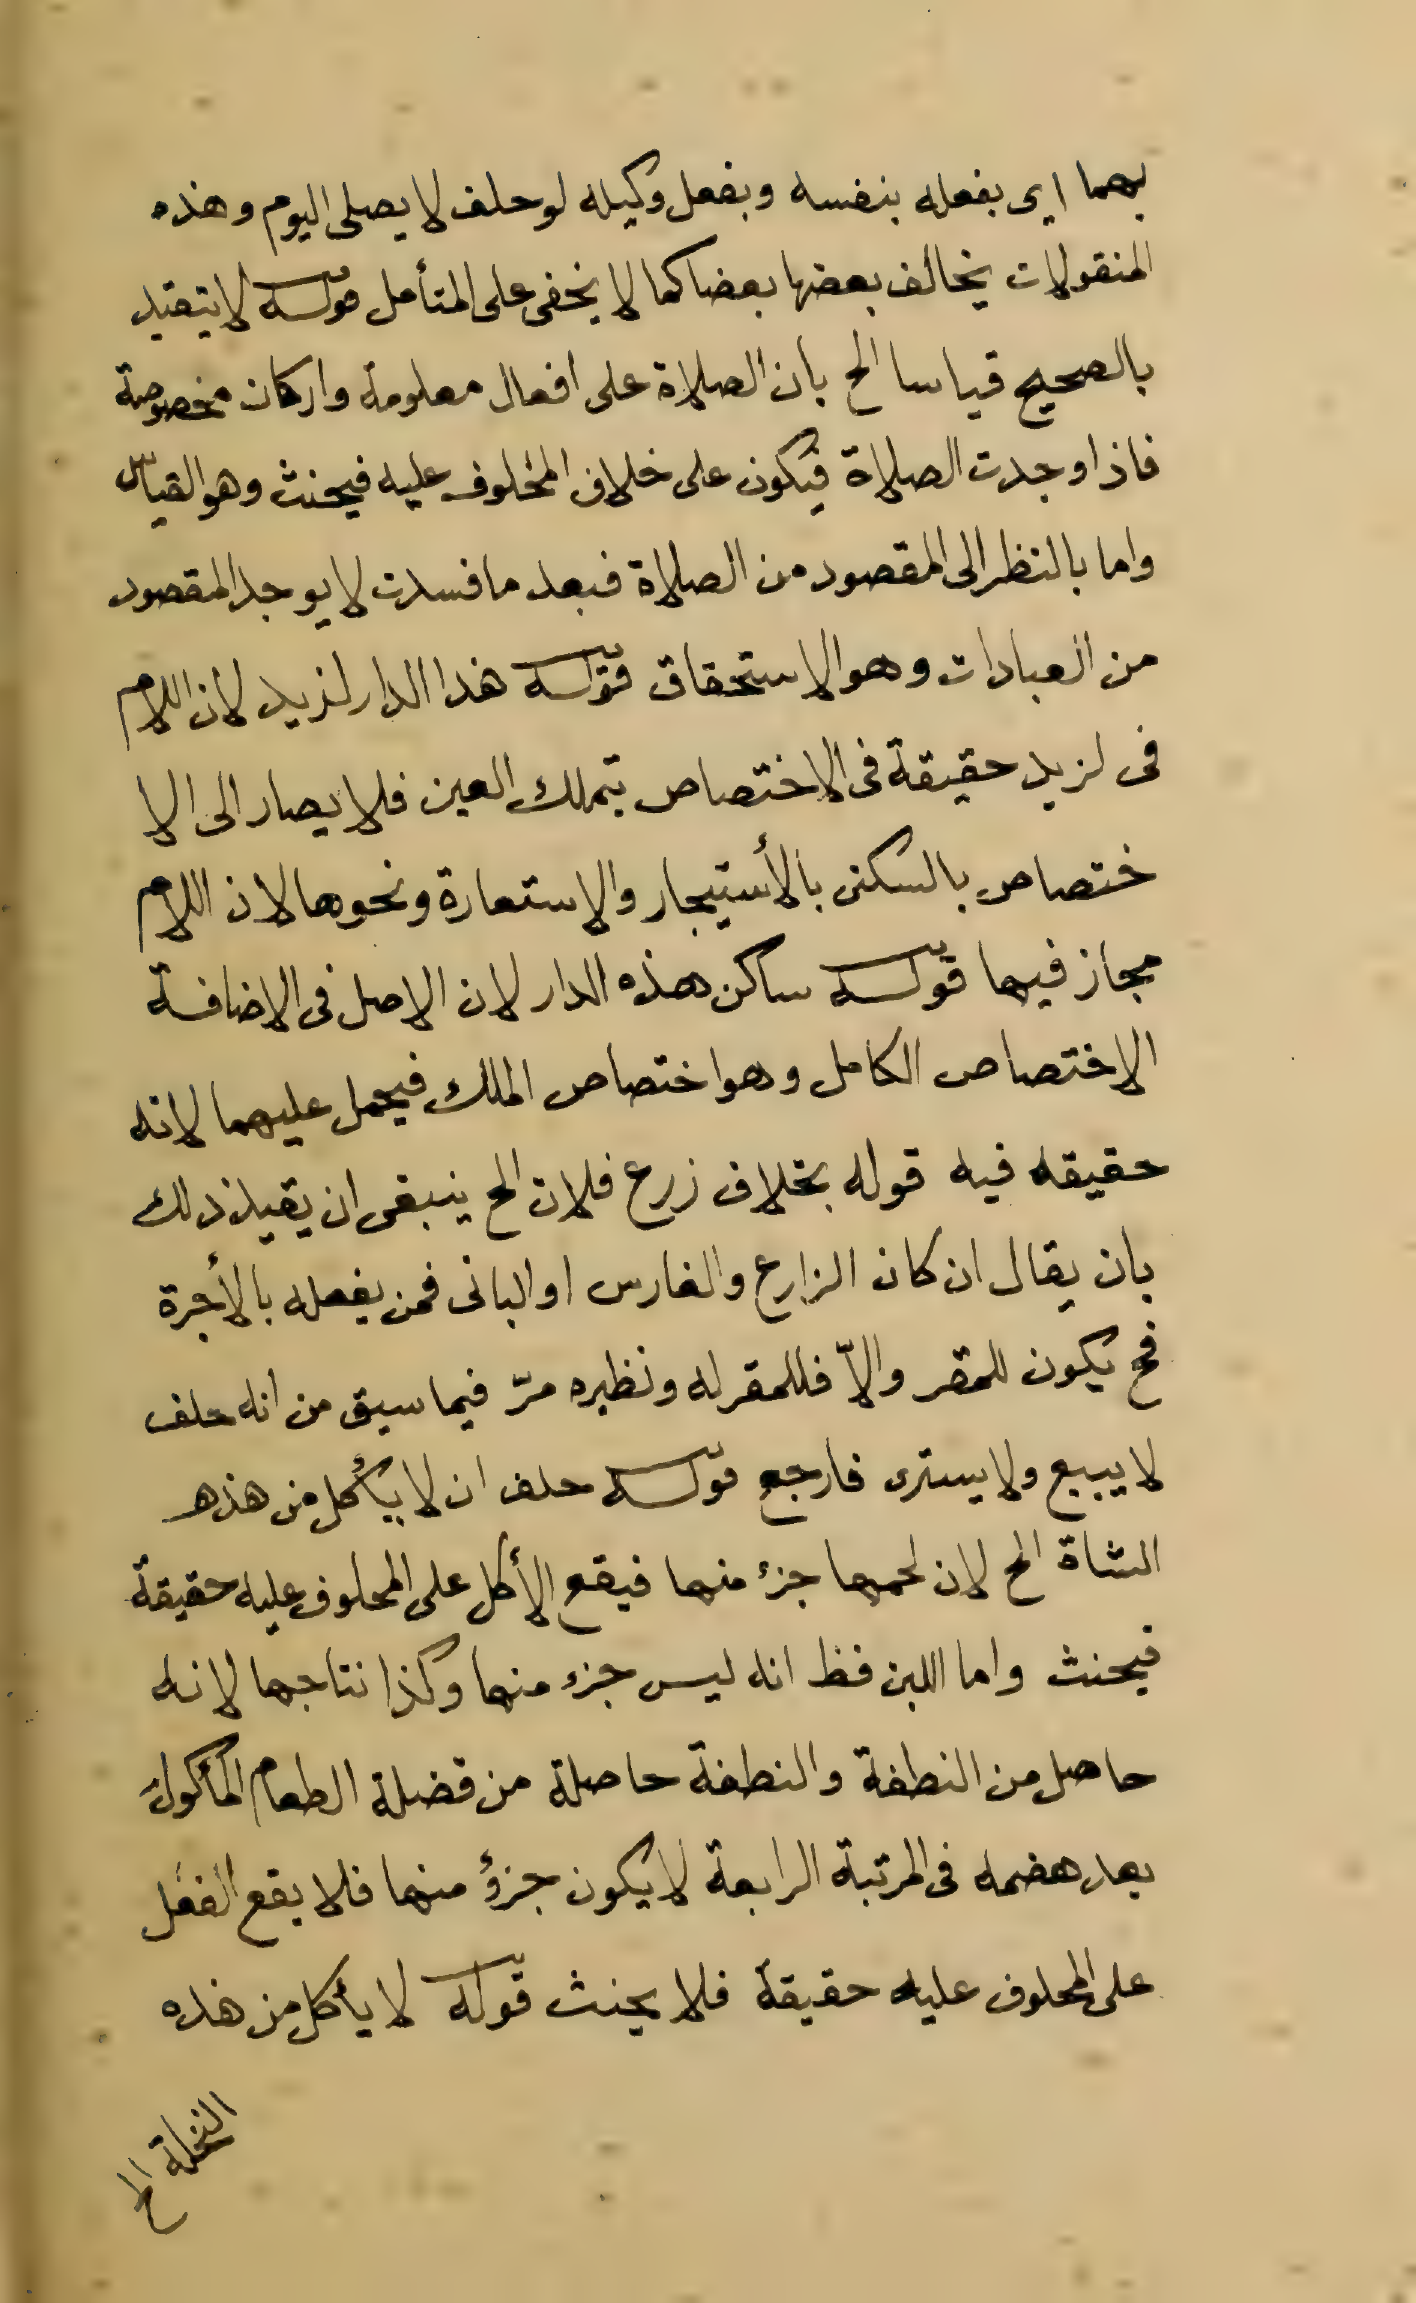 بهما اى بفعله بنفسه وبفعل وكيله لو حلف لا يصلى اليوم وهذه
المنقولات يخالف بعضها بعضا كما لا يخفى على المتأمل قوله لا يتقيد
بالصحيح قياسا الخ بان الصلاة على افعال معلومة واركان مخصوصة
فاذا وجدت الصلاة فيكون على خلاف المخلوف عليه فيحنث وهو القياس
واما بالنظر الى المقصود من الصلاة فبعد ما فسدت لا يوجد المقصود
من العبادات وهو الاستحقاق قوله هذا الدار لزيد لان اللام
فى لزيد حقيقة فى الاختصاص بتملك العين فلا يصار الى الا
ختصاص بالسكنى بالأستيجار والاستعارة ونحوها لان اللام
مجاز فيها قوله ساكن هذه الدار لان الاصل فى الاضافة
الاختصاص الكامل وهو اختصاص الملك فيحمل عليهما لانه
حقيقه فيه قوله بخلاف زرع فلان الخ ينبغى ان يقيد ذلك
بان يقال ان كان الزارع والغارس او البانى فمن يفعله بالأجرة
فح يكون للمقر والاّ فللمقر له ونظيره مرّ فيما سبق من انه حلف
لا يبيع ولا يسترى فارجع قوله حلف ان لا يأكل من هذه
الشاة الخ لان لحمها جزء منها فيقع الأكل على المحلوف عليه حقيقة
فيحنث واما اللبن فظ انه ليس جزء منها وكذا نتاجها لانه
حاصل من النطفة والنطفة حاصلة من فضلة الطعام المأكول
بعد هضمه فى المرتبة الرابعة لا يكون جزؤ منها فلا يقع الفعل
على المحلوف عليه حقيقة فلا يحنث قوله لا يأكل من هذه
النخلة الخ